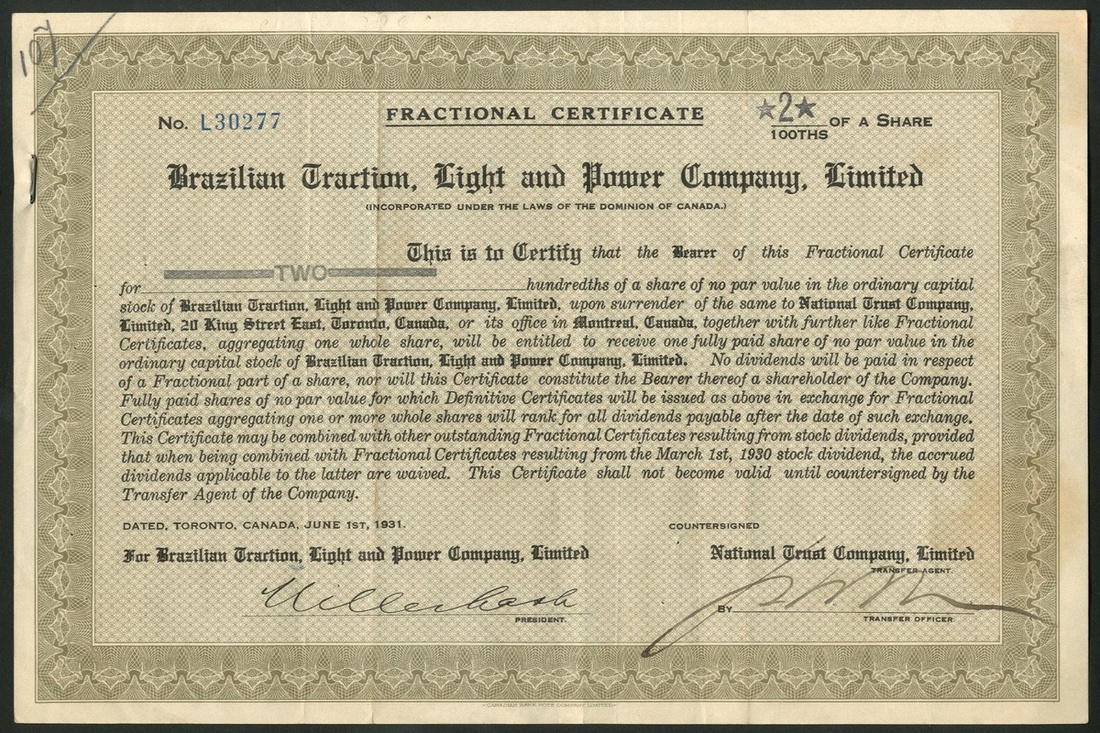 107
No. L30277
FRACTIONAL CERTIFICATE
★2★
100THS OF A SHARE
Brazilian Traction, Light and Power Company, Limited
(INCORPORATED UNDER THE LAWS OF THE DOMINION OF CANADA.)
This is to Certify that the Bearer of this Fractional Certificate
for TWO hundredths of a share of no par value in the ordinary capital
stock of Brazilian Traction, Light and Power Company, Limited, upon surrender of the same to National Trust Company,
Limited, 20 King Street East, Toronto, Canada, or its office in Montreal, Canada, together with further like Fractional
Certificates, aggregating one whole share, will be entitled to receive one fully paid share of no par value in the
ordinary capital stock of Brazilian Traction, Light and Power Company, Limited. No dividends will be paid in respect
of a Fractional part of a share, nor will this Certificate constitute the Bearer thereof a shareholder of the Company.
Fully paid shares of no par value for which Definitive Certificates will be issued as above in exchange for Fractional
Certificates aggregating one or more whole shares will rank for all dividends payable after the date of such exchange.
This Certificate may be combined with other outstanding Fractional Certificates resulting from stock dividends, provided
that when being combined with Fractional Certificates resulting from the March 1st, 1930 stock dividend, the accrued
dividends applicable to the latter are waived. This Certificate shall not become valid until countersigned by the
Transfer Agent of the Company.
DATED, TORONTO, CANADA, JUNE 1ST, 1931.
COUNTERSIGNED
For Brazilian Traction, Light and Power Company, Limited
National Trust Company, Limited
TRANSFER AGENT.
PRESIDENT.
BY
TRANSFER OFFICER
CANADIAN BANK NOTE COMPANY LIMITED